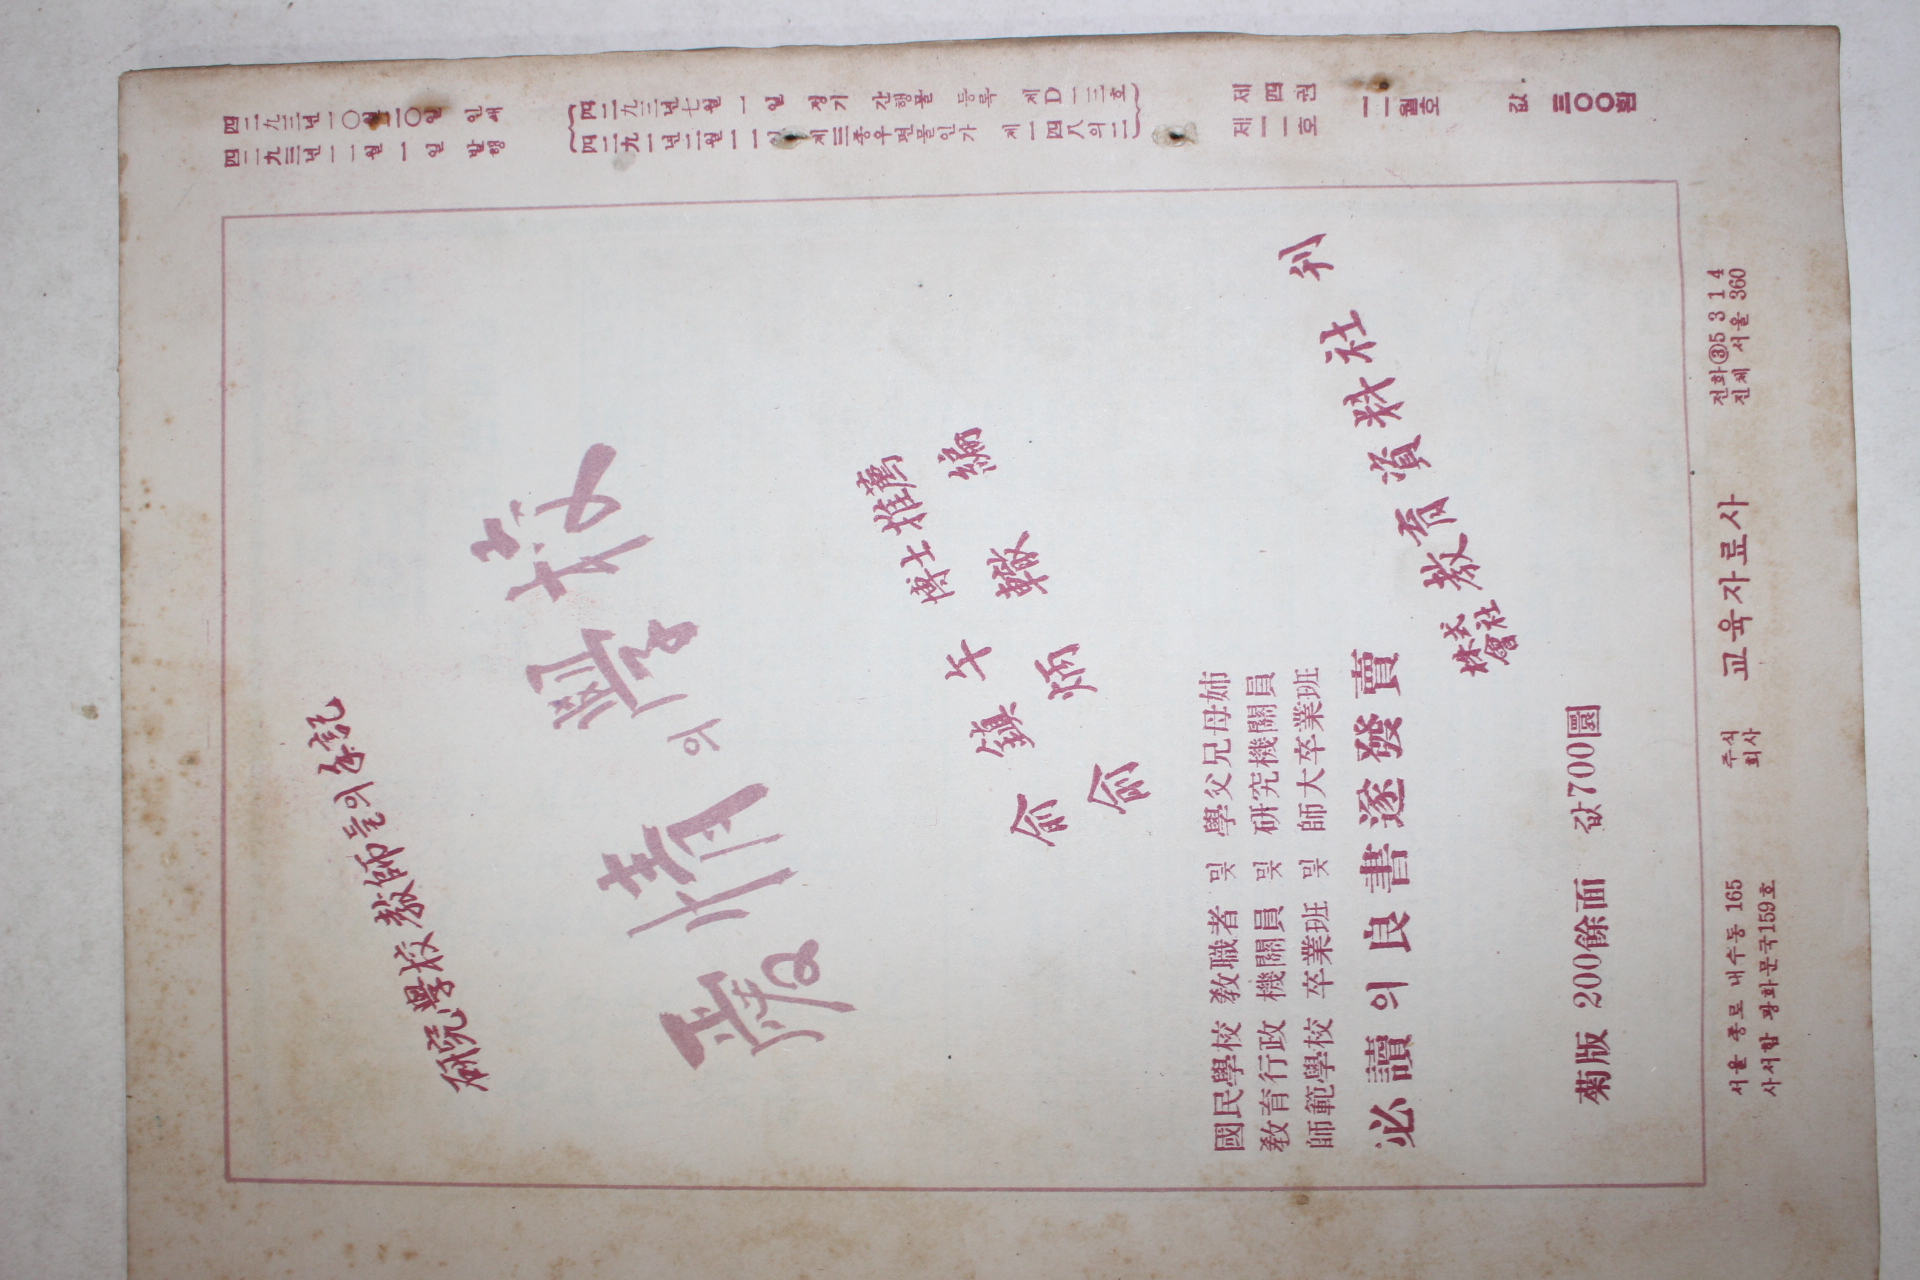 四二九三년一○월二○일 인쇄
四二九三년一一월一일 발행
四二九三년七월一일 정기 간행물 등록 제D一三호
四二九一년二월一一일 제三종우편물인가 제一四八의二
제四권
제一一호
一一월호
값 三○○환
研究學校教師들의 手記
愛情의 學校
俞鎭午 博士 推薦
俞炳轍 編
國民學校 敎職者 및 學父兄母姉
敎育行政 機關員 및 研究機關員
師範學校 卒業班 및 師大卒業班
必讀의 良書遂發賣
株式會社 教育資料社 刊
菊版 200餘面 값700圜
서울 종로 내수동 165
사서함 광화문국159호
주식회사 교육자료사
전화③5314
진체 서울 360